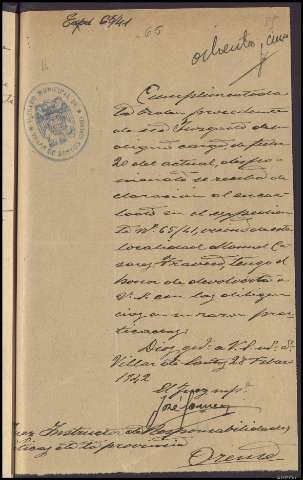 Expte 65/41
65
85
ochenta y cinco
JUZGADO MUNICIPAL
Cumplimentada
la orden procedente
de ese Juzgado de
su digno cargo de fecha
20 del actual, dispo
niendo se reciba de
claracion al encar
tado en el expediente
Nº 65/41, vecino de esta
localidad Manuel Ca
sares, tengo el
honor de devolverla a
V.S. con las diligen
cias en su razon prac
ticadas.
Dios gde. a V.S. m. a.
Villar de Santos 28 Febrero
1942
El Juez mpal.
José
Juez Instructor de Responsabilidades
Politicas de la provincia
Orense